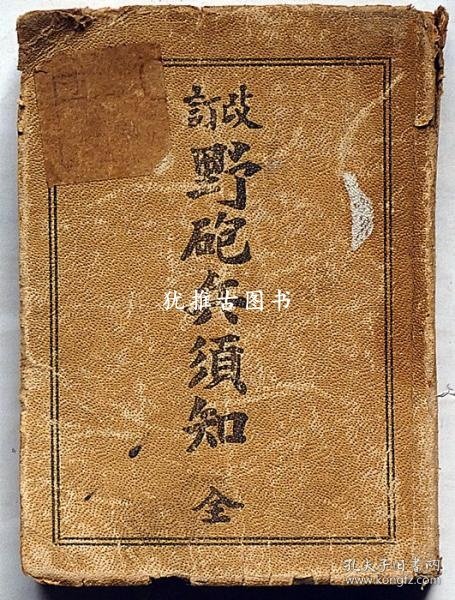 改訂
野砲兵須知
全
犹推古图书
孔夫子旧书网
www.kongfz.com